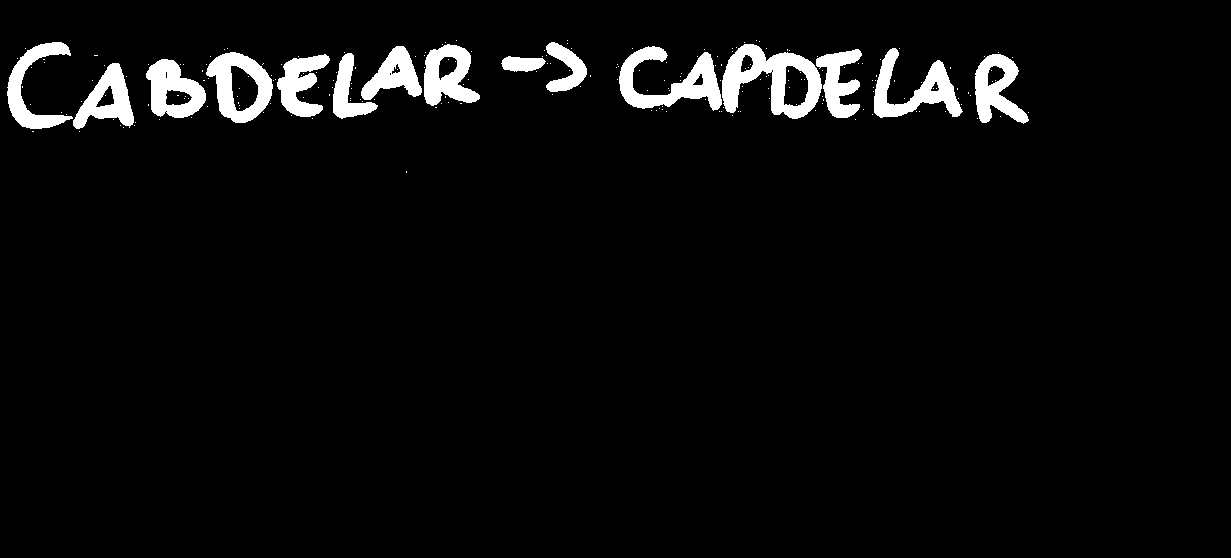 CABDELAR -> CAPDELAR